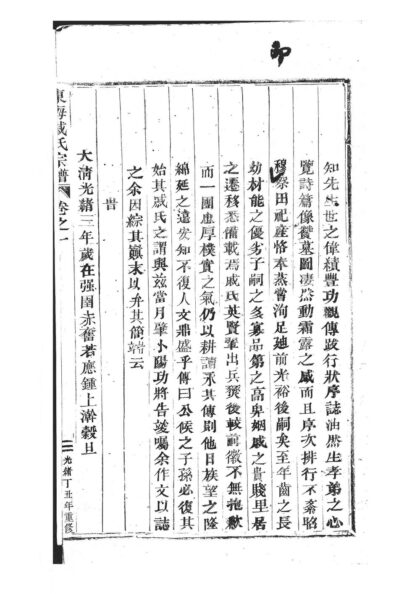 印
知先生世之偉績豐功觀傳跋行狀序誌油然生孝弟之心
覽詩篇像贊墓圖凄然動霜露之感而且序次排行不紊昭
穆祭田祀產恪奉蒸嘗洵足廸前光裕後嗣矣至年齒之長
幼材能之優劣子嗣之多寡品第之高卑姻戚之貴賤里居
之遷移悉備載焉戚氏英賢輩出兵燹後較前徽不無抱歉
而一團忠厚樸實之氣仍以耕讀永其傳則他日族望之隆
綿延之遠安知不復人文鼎盛乎傳曰公侯之子孫必復其
始其戚氏之謂與兹當月肇卜陽功將告竣囑余作文以誌
之余因綜其巔末以弁其簡端云
旹
大清光緒三年歲在强圉赤奮若應鍾上澣穀旦
東海戚氏宗譜
卷之一
光緒丁丑年重修